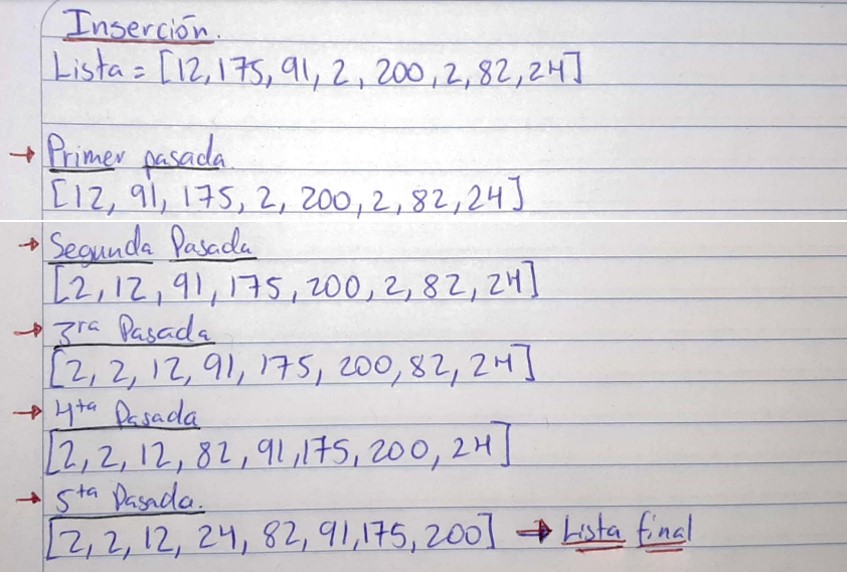 Inserción.
Lista = [12, 175, 91, 2, 200, 2, 82, 24]
→ Primer pasada.
[12, 91, 175, 2, 200, 2, 82, 24]
→ Segunda Pasada
[2, 12, 91, 175, 200, 2, 82, 24]
→ 3ra Pasada
[2, 2, 12, 91, 175, 200, 82, 24]
→ 4ta Pasada
[2, 2, 12, 82, 91, 175, 200, 24]
→ 5ta Pasada.
[2, 2, 12, 24, 82, 91, 175, 200] → Lista final